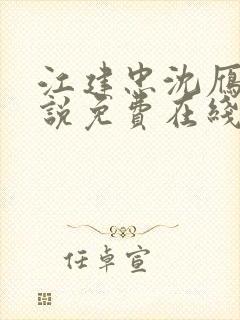 江建忠沈雁
說免費在綫
任卓宣